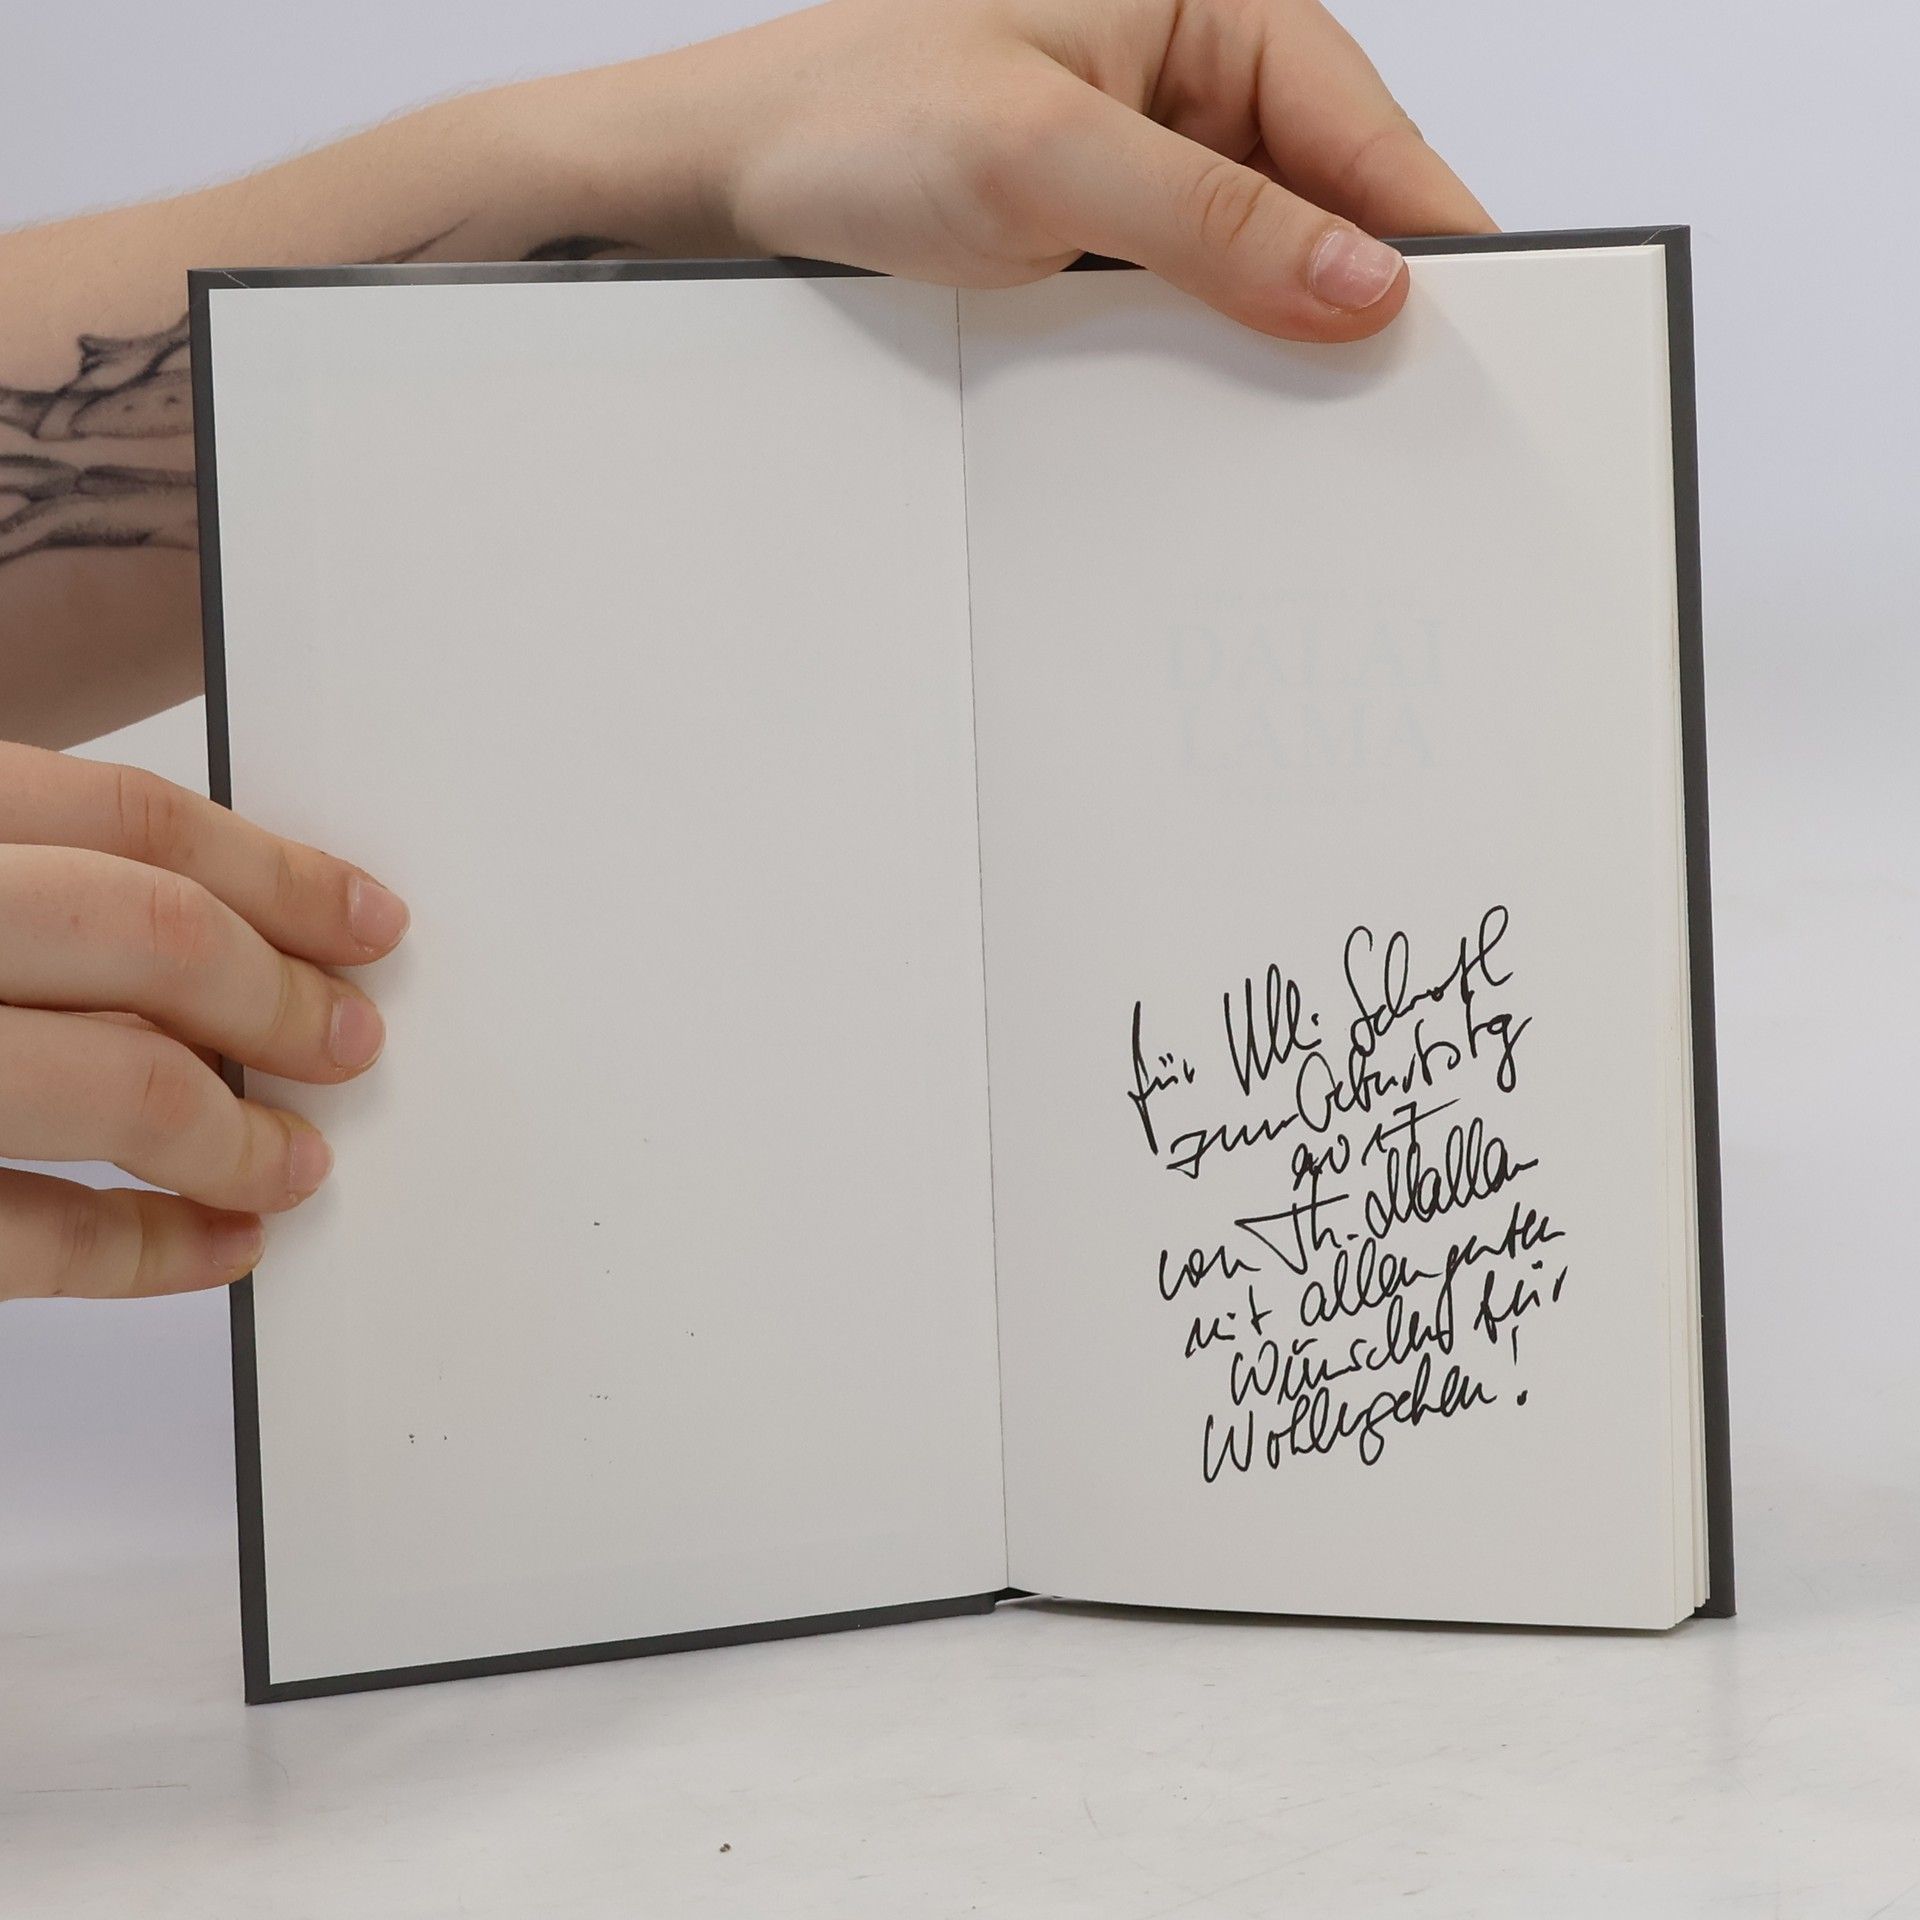 DALAI
LAMA
für Ulli Schott
zum Geburtstag
2017
von Th.
mit allen guten
Wünschen für
Wohlergehen!